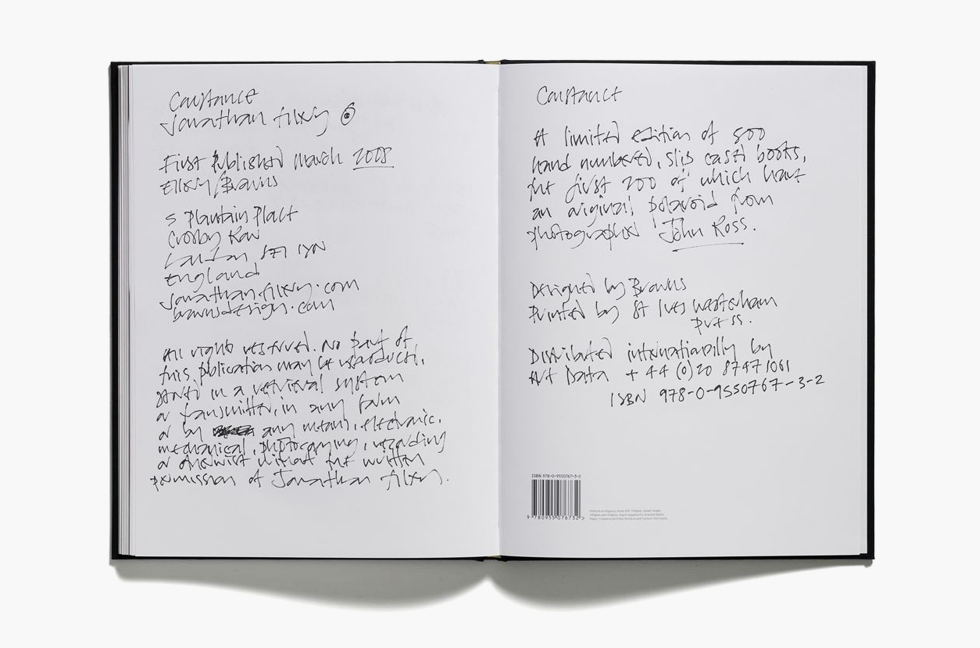 Constance
Jonathan Ellery ©
First Published March 2008
Ellery/Browns
5 Plantain Place
Crosby Row
London SE1 1YN
England
jonathanellery.com
brownsdesign.com
All rights reserved. No part of
this publication may be reproduced,
stored in a retrieval system
or transmitted, in any form
or by any means, electronic,
mechanical, photocopying, recording
or otherwise without the written
permission of Jonathan Ellery.
Constance
A limited edition of 500
hand numbered, slip cased books,
the first 200 of which have
an original polaroid from
photographer John Ross.
Designed by Browns
Printed by St Ives Westerham
Press.
Distributed internationally by
Art Data +44 (0)20 87471061
ISBN 978-0-9550767-3-2
ISBN 978-0-9550767-3-2
9 780955 076732 >